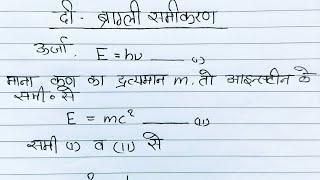 दी - ब्राग्ली समीकरण
ऊर्जा. E = hυ ——— (i)
माना कण का द्रव्यमान m. तो आइन्स्टीन के
समी॰ से
E = mc² ——— (ii)
समी (i) व (ii) से